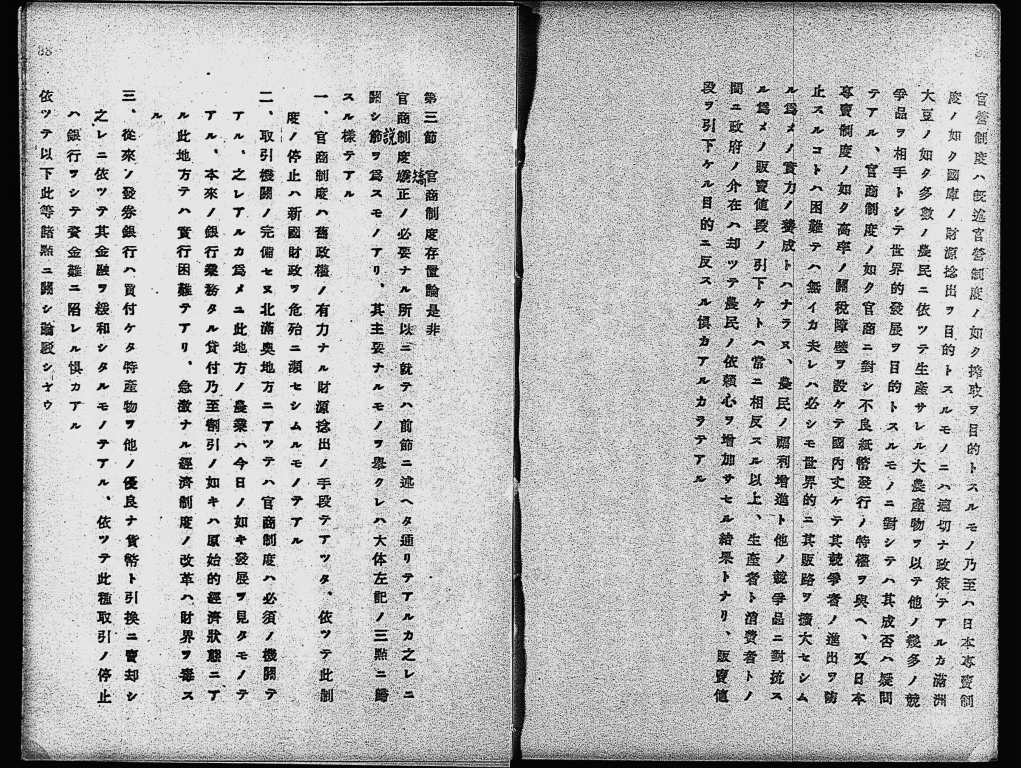 官營制度ハ既述官營制度ノ如ク搾取ヲ目的トスルモノ乃至ハ日本專賣制
度ノ如ク國庫ノ財源捻出ヲ目的トスルモノニハ適切ナ政策テアルカ滿洲
大豆ノ如ク多數ノ農民ニ依ツテ生產サレル大農產物ヲ以テ他ノ幾多ノ競
爭品ヲ相手トシテ世界的發展ヲ目的トスルモノニ對シテハ其成否ハ疑問
テアル、官商制度ノ如ク官商ニ對シ不良紙幣發行ノ特權ヲ與ヘ、又日本
專賣制度ノ如ク高率ノ關稅障壁ヲ設ケテ國內丈ケテ其競爭者ノ進出ヲ防
止スルコトハ困難テハ無イカ夫レハ必シモ世界的ニ其販路ヲ擴大セシム
ル爲メノ實力ノ養成トハナラヌ、農民ノ福利增進ト他ノ競爭品ニ對抗ス
ル爲メノ販賣値段ノ引下ケトハ常ニ相反スル以上、生產者ト消費者トノ
間ニ政府ノ介在ハ却ツテ農民ノ依賴心ヲ增加サセル結果トナリ、販賣値
段ヲ引下ケル目的ニ反スル惧カアルカラテアル
第三節 官商制度存置論是非
官商制度矯正ノ必要ナル所以ニ就テハ前節ニ述ヘタ通リテアルカ之レニ
關シ節ヲ爲スモノアリ、其主要ナルモノヲ擧クレハ大体左記ノ三點ニ歸
說
スル樣テアル
一、官商制度ハ舊政權ノ有力ナル財源捻出ノ手段テアツタ、依ツテ此制
度ノ停止ハ新國財政ヲ危殆ニ瀕セシムルモノテアル
二、取引機關ノ完備セヌ北滿奧地方ニアツテハ官商制度ハ必須ノ機關テ
アル、之レアルカ爲メニ此地方ノ農業ハ今日ノ如キ發展ヲ見タモノテ
アル、本來ノ銀行業務タル貸付乃至割引ノ如キハ原始的經濟狀態ニア
ル此地方テハ實行困難テアリ、急激ナル經濟制度ノ改革ハ財界ヲ毒ス
ル
三、從來ノ發券銀行ハ買付ケタ特產物ヲ他ノ優良ナ貨幣ト引換ニ賣却シ
之レニ依ツテ其金融ヲ緩和シタルモノテアル、依ツテ此種取引ノ停止
ハ銀行ヲシテ資金難ニ陷レル惧カアル
依ツテ以下此等諸點ニ關シ論駁シヤウ